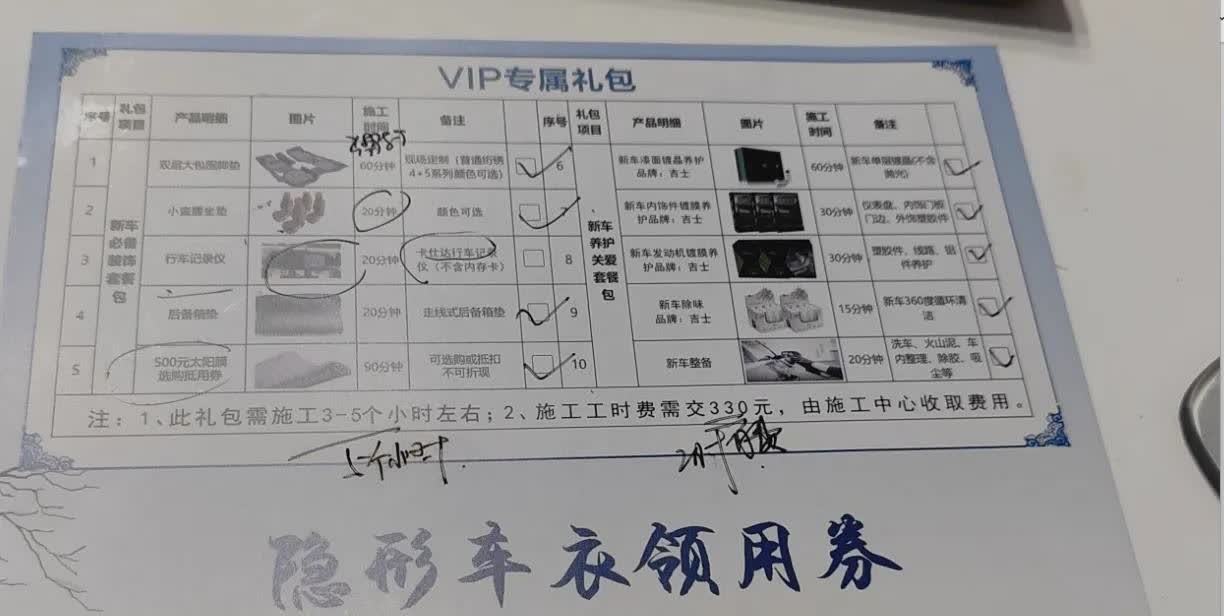 VIP专属礼包
序号 礼包项目 产品明细 图片 施工时间 备注 序号 礼包项目 产品明细 图片 施工时间 备注
1 双层大包围脚垫 60分钟 现场定制（普通绗绣4+5系列颜色可选） 6 新车漆面镀晶养护 品牌：吉士 60分钟 新车单层镀晶(不含抛光)
2 小蛮腰坐垫 20分钟 颜色可选 7 新车内饰件镀膜养护品牌：吉士 30分钟 仪表盘、内饰门板 门边、外饰塑胶件
新车必备装饰套餐包
新车养护关爱套餐包
3 行车记录仪 20分钟 卡仕达行车记录仪（不含内存卡） 8 新车发动机镀膜养护品牌：吉士 30分钟 塑胶件、线路、铝件养护
4 后备箱垫 20分钟 走线式后备箱垫 9 新车除味 品牌：吉士 15分钟 新车360度循环清洁
5 500元太阳膜选购抵用券 90分钟 可选购或抵扣 不可折现 10 新车整备 20分钟 洗车、火山泥、车内整理、除胶、吸尘等
注：1、此礼包需施工3-5个小时左右；2、施工工时费需交330元，由施工中心收取费用。
5个小时
隐形车衣领用券